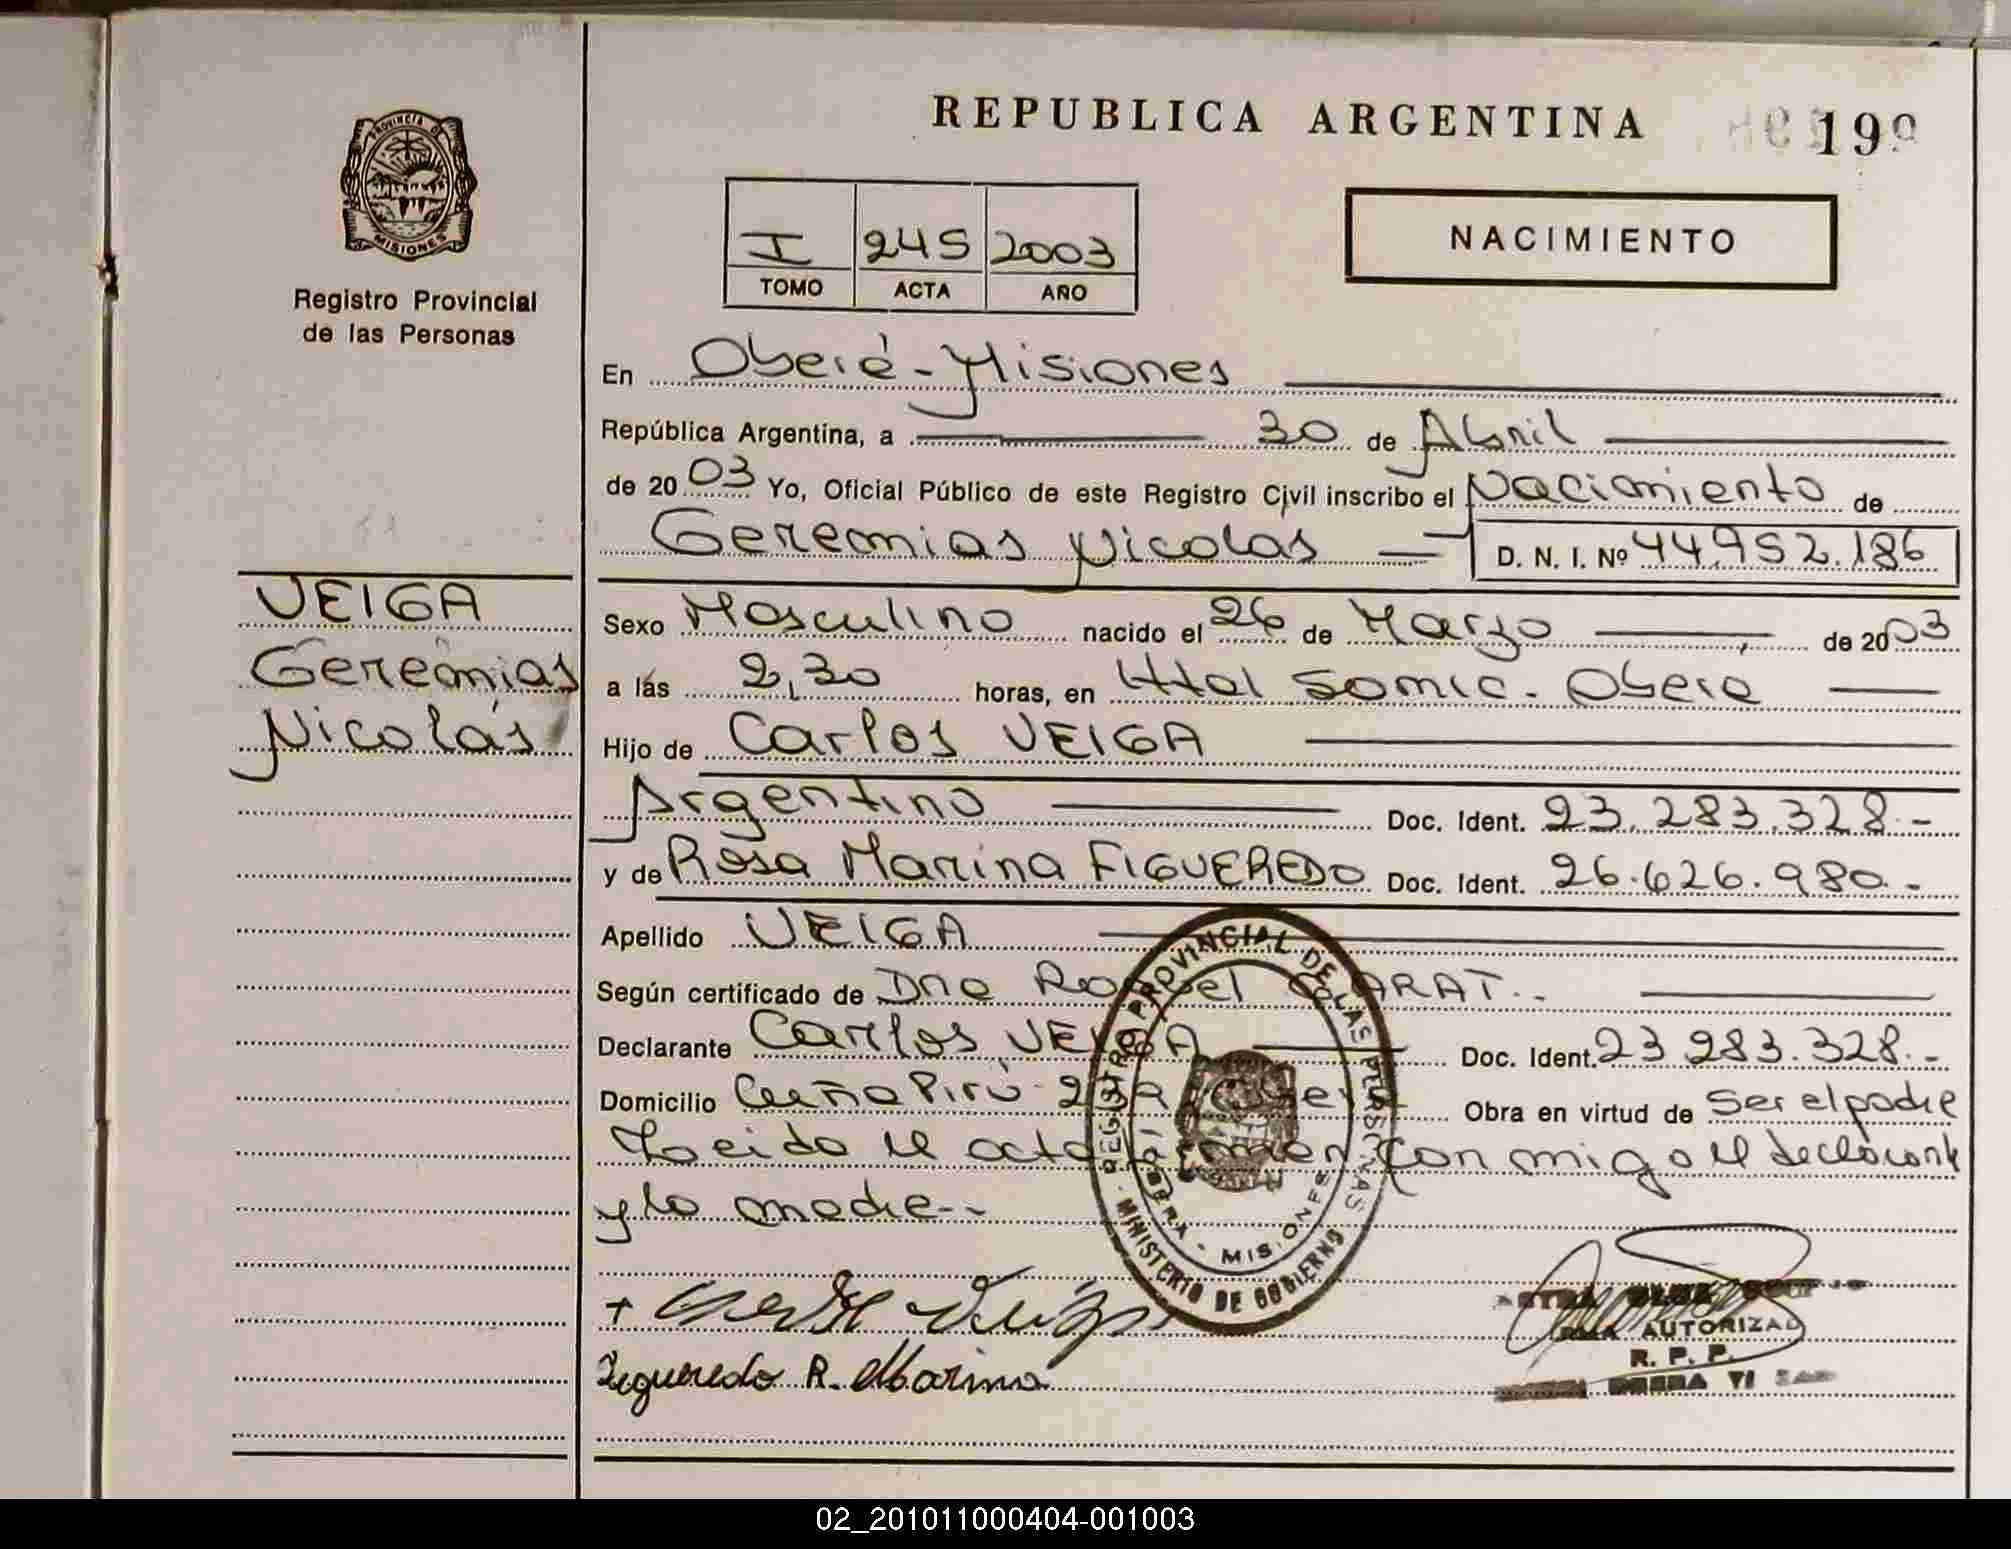 PROVINCIA DE
MISIONES
Registro Provincial
de las Personas
REPUBLICA ARGENTINA 199
I 245 2003
TOMO ACTA AÑO
NACIMIENTO
En Oberá - Misiones
República Argentina, a 30 de Abril
de 2003 Yo, Oficial Público de este Registro Civil inscribo el Nacimiento de
Geremias Nicolas D. N. I. Nº 44.952.186
VEIGA
Geremias
Nicolás
Sexo Masculino nacido el 26 de Marzo de 2003
a las 2,30 horas, en Htal Samic. Obera
Hijo de Carlos VEIGA
Argentino Doc. Ident. 23.283.328.-
y de Rosa Marina FIGUEREDO Doc. Ident. 26.626.980.-
Apellido VEIGA
Según certificado de Dna
Declarante Carlos VEIGA Doc. Ident. 23.283.328.-
Domicilio Cuña Pirú Obra en virtud de Ser el padre
Leido el acta firman conmigo el declarante
y la madre.-
REGISTRO PROVINCIAL DE LAS PERSONAS
MISIONES
MINISTERIO DE GOBIERNO
Figueredo R. Marina
AUTORIZAD
R. P. P.
02_201011000404-001003